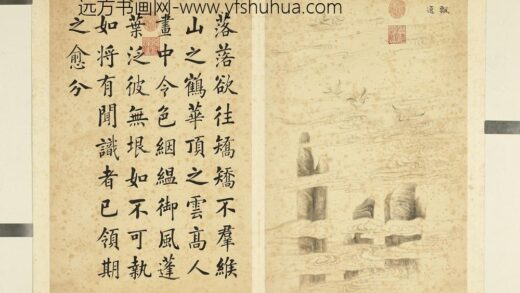 远方书画网- www.yfshuhua.com
飄逸
落落欲往矯矯不羣緱
山之鶴華頂之雲高人
畫中令色絪縕御風蓬
葉泛彼無垠如不可執
如將有聞識者已領期
之愈分